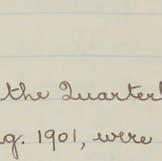 the Quarterl
g. 1901, were